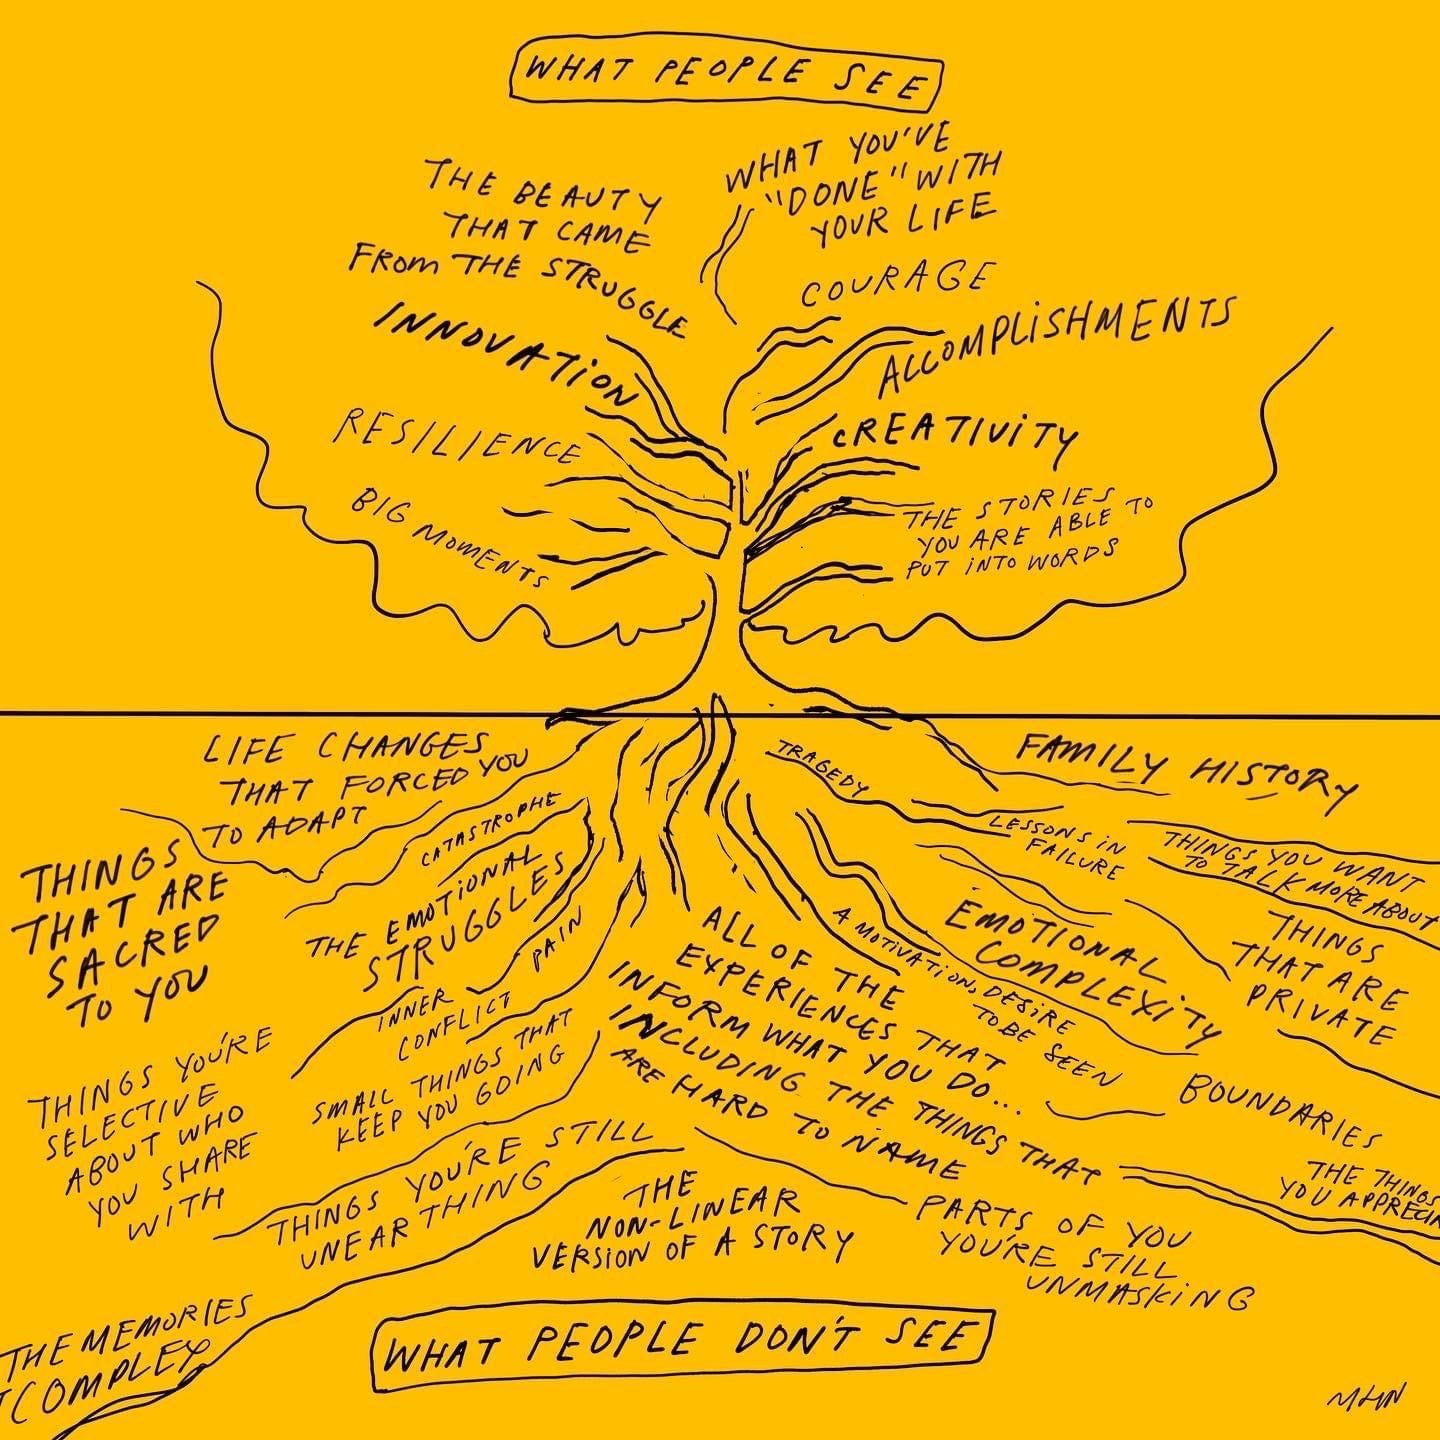 WHAT PEOPLE SEE
THE BEAUTY
THAT CAME
FROM THE STRUGGLE
WHAT YOU'VE
"DONE" WITH
YOUR LIFE
COURAGE
INNOVATION
ACCOMPLISHMENTS
RESILIENCE
CREATIVITY
BIG MOMENTS
THE STORIES
YOU ARE ABLE TO
PUT INTO WORDS
LIFE CHANGES
THAT FORCED YOU
TO ADAPT
TRAGEDY
FAMILY HISTORY
CATASTROPHE
LESSONS IN
FAILURE
THINGS YOU WANT
TO TALK MORE ABOUT
THINGS
THAT ARE
SACRED
TO YOU
THE EMOTIONAL
STRUGGLES
PAIN
A MOTIVATION, DESIRE
TO BE SEEN
EMOTIONAL
COMPLEXITY
THINGS
THAT ARE
PRIVATE
INNER
CONFLICT
ALL OF THE
EXPERIENCES THAT
INFORM WHAT YOU DO...
INCLUDING THE THINGS THAT
ARE HARD TO NAME
THINGS YOU'RE
SELECTIVE
ABOUT WHO
YOU SHARE
WITH
SMALL THINGS THAT
KEEP YOU GOING
BOUNDARIES
THINGS YOU'RE STILL
UNEARTHING
THE
NON-LINEAR
VERSION OF A STORY
PARTS OF YOU
YOU'RE STILL
UNMASKING
THE THINGS
YOU
THE MEMORIES
COMPLEX
WHAT PEOPLE DON'T SEE
MHN